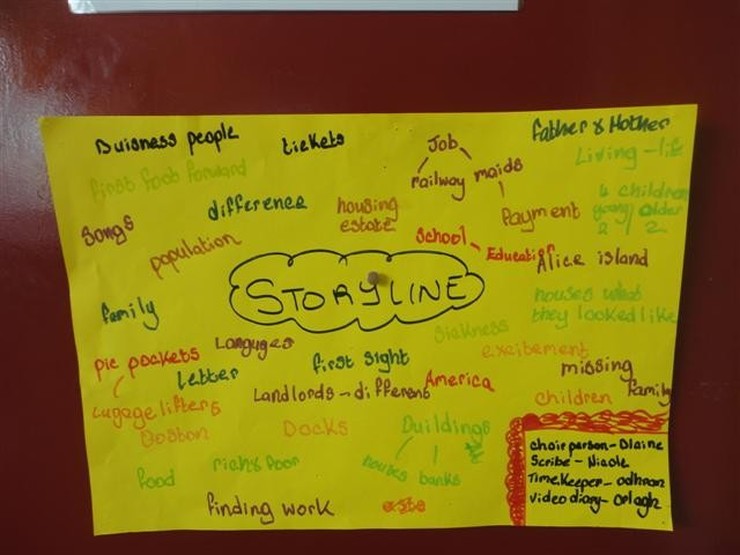 Buisness people
tickets
Job
Father & Mother
Living - life
first foot forward
railway
maids
difference
housing
estate
Payment
4 children
young/older
2 2
Songs
population
School - Education
Alice island
STORYLINE
houses what
they looked like
family
Languges
Sickness
excitement
pic pockets
Letter
first sight
missing
family
Landlords - different
America
children
Lugage lifters
Boston
Docks
Buildings
houses banks
food
rich & poor
finding work
chairperson - Blaine
Scribe - Nicole
Timekeeper - odhran
video diary - Orlagh